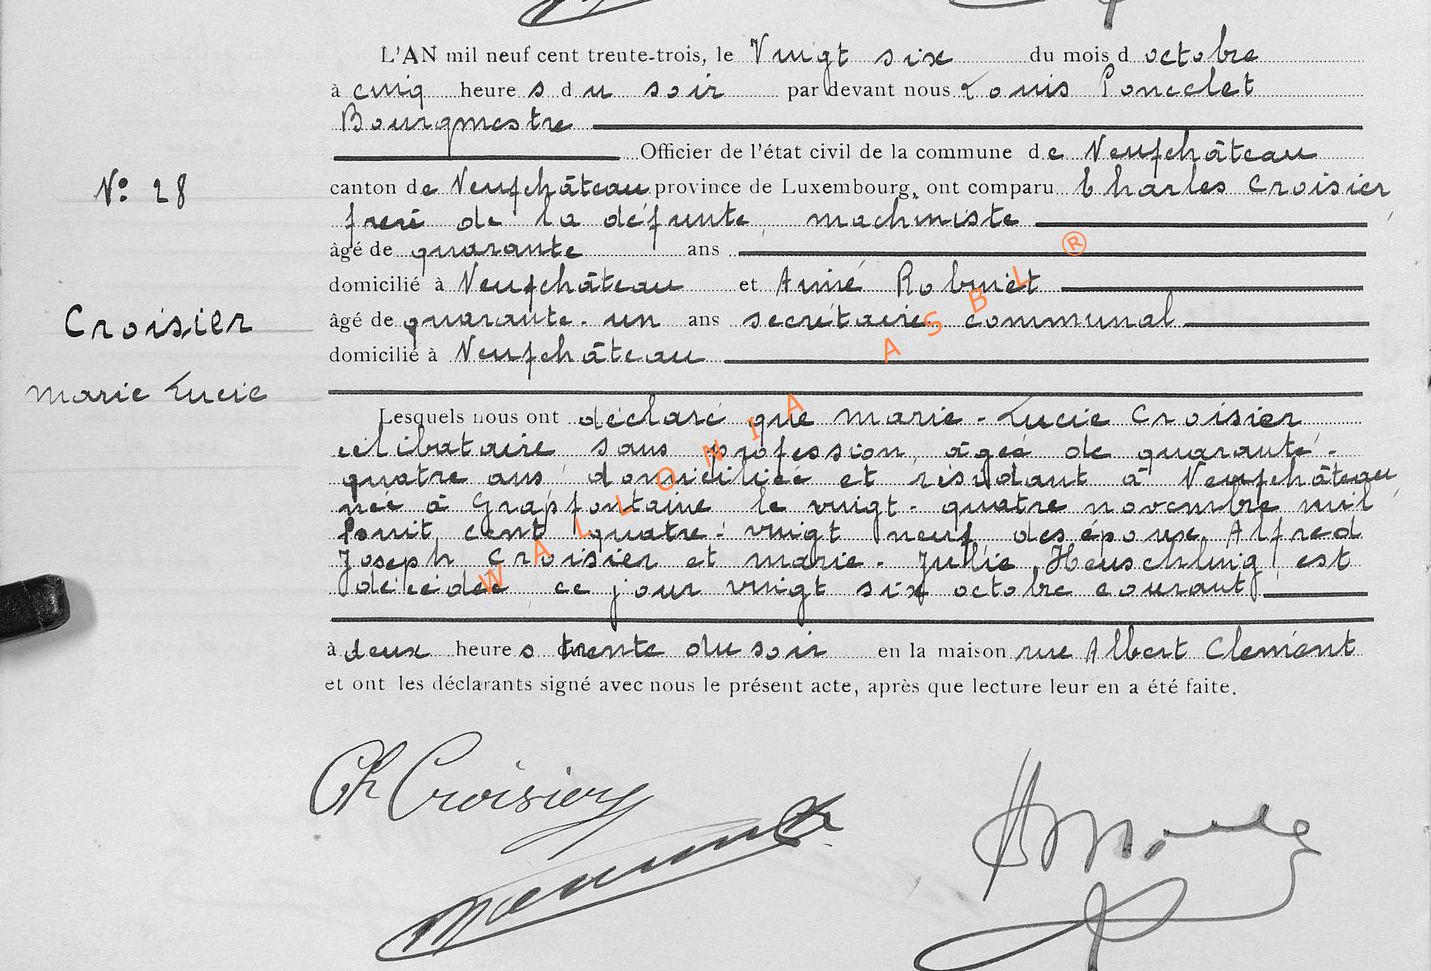 L'AN mil neuf cent trente-trois, le Vingt six du mois d octobre
à cinq heure s d u soir par devant nous Louis Poncelet
Bourgmestre
Officier de l'état civil de la commune de Neufchâteau
N° 28
canton de Neufchâteau province de Luxembourg, ont comparu Charles Croisier,
frere de la défunte, machiniste
âgé de quarante ans
domicilié à Neufchâteau et Aimé Robinet
Croisier
âgé de quarante-un ans secrétaire communal
domicilié à Neufchâteau
marie Lucie
Lesquels nous ont déclaré que marie-Lucie Croisier
célibataire sans profession, âgée de quarante-
quatre ans domiciliée et résidant à Neufchâteau,
née à Grapfontaine le vingt-quatre novembre mil
huit cent quatre-vingt neuf des époux Alfred
Joseph Croisier et marie-Julie Heuschling, est
décédée ce jour vingt six octobre courant
à deux heure s trente du soir en la maison rue Albert Clement
et ont les déclarants signé avec nous le présent acte, après que lecture leur en a été faite.
Ch Croisier
WALLONIA ASBL ®